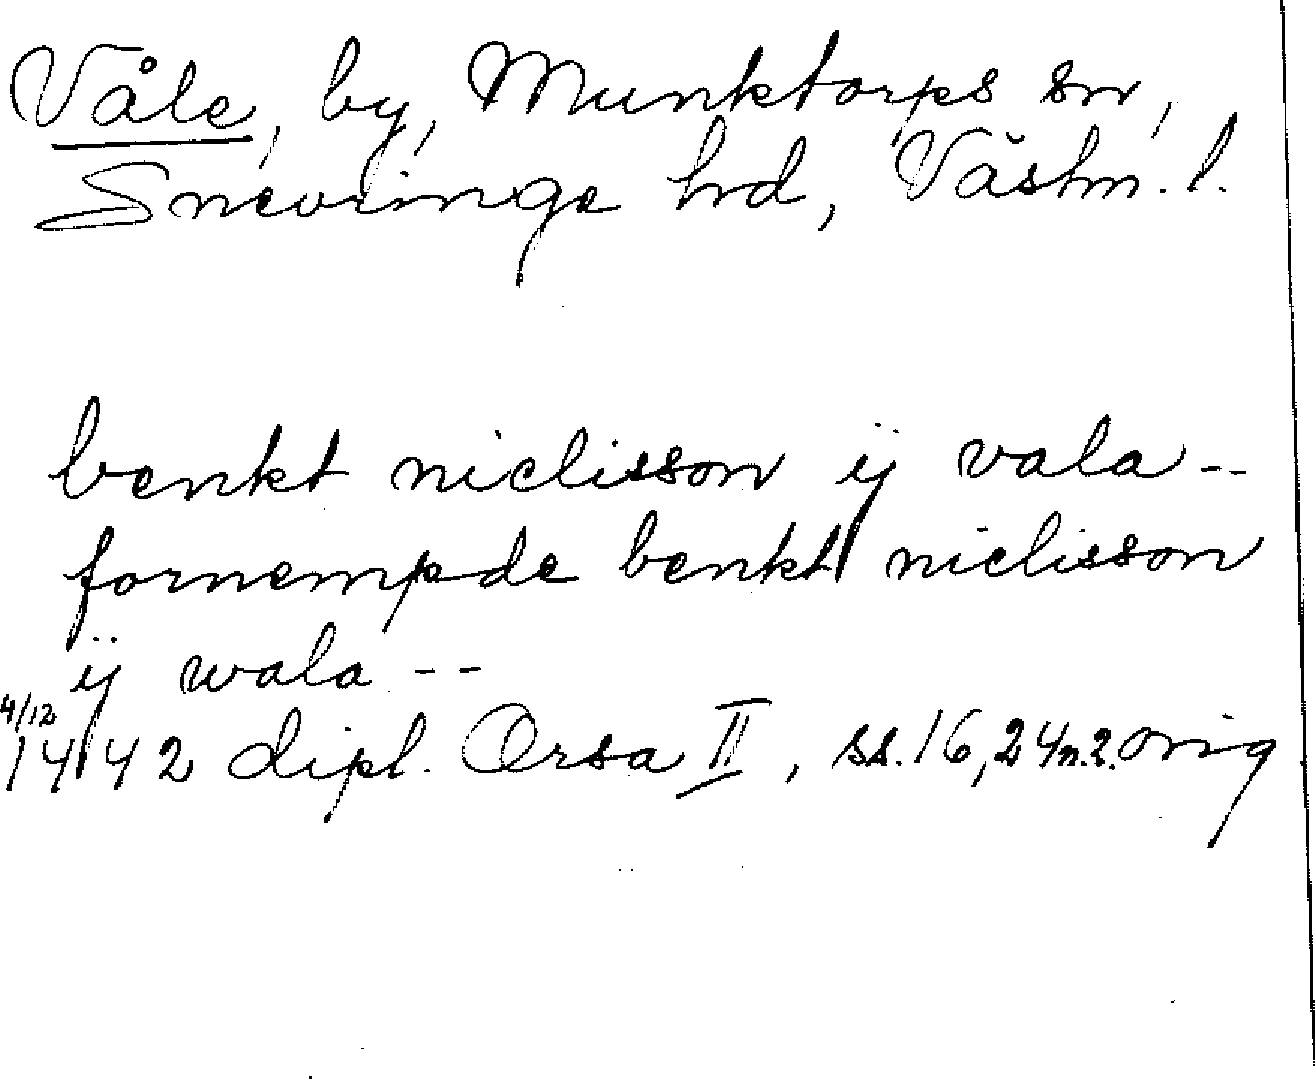 Våle, by, Munktorps sn,
Snevringe hrd, Västm. l.
benkt niclisson ÿ vala --
fornempde benkt niclisson
ÿ wala --
4/12
1442 dipl. Orsa II, ss. 16, 24 n. 2. orig